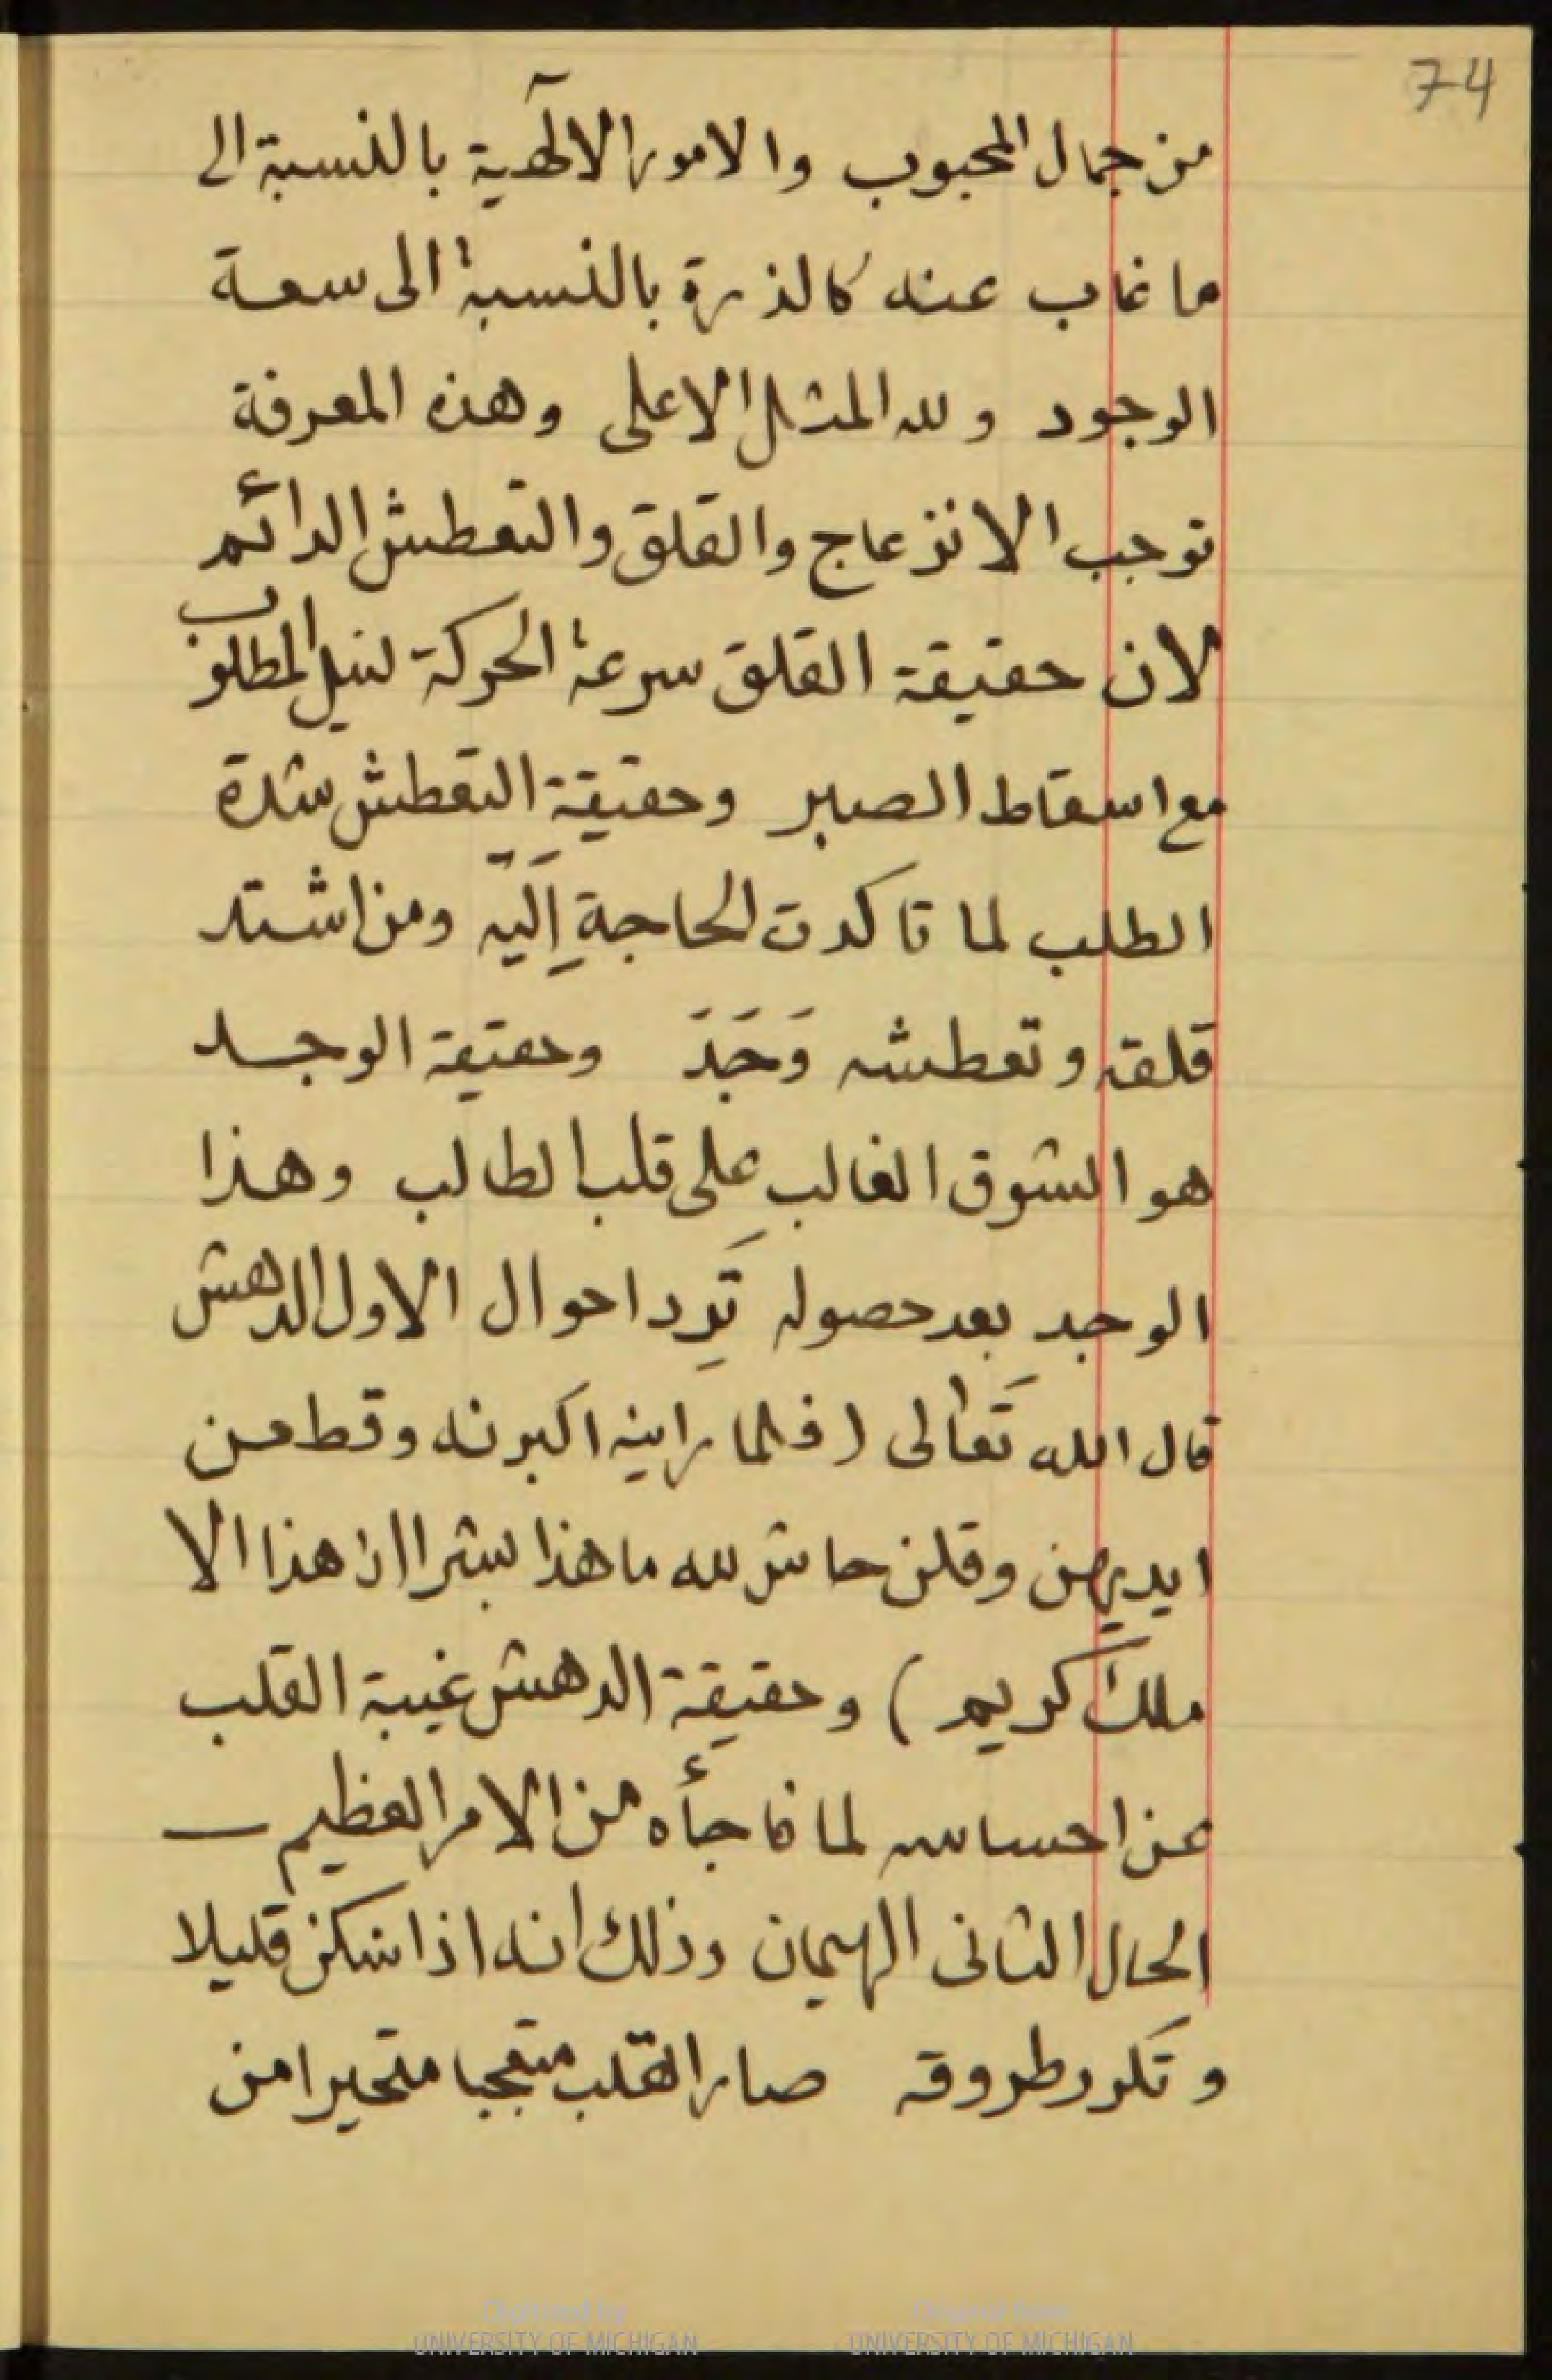 74
من جمال المحبوب والامور الالٓهية بالنسبة الى
ما غاب عنه كالذرة بالنسبة الى سعة
الوجود ولله المثل الاعلى وهذه المعرفة
توجب الانزعاج والقلق والتعطش الدائم
لان حقيقة القلق سرعة الحركة لنيل المطلوب
مع اسقاط الصبر وحقيقة التعطش شدة
الطلب لما تاكدت الحاجة اِلَيْه ومن اشتد
قلقه وتعطشه وَجَدَ وحقيقة الوجد
هو الشوق الغالب على قلب الطالب وهذا
الوجد بعد حصوله تَرِد احوال الاول الدهش
قال الله تَعالى (فلما راينه اكبرنه وقطعن
ايديهن وقلن حاش لله ما هذا بشرا ان هذا الا
ملك كريم) وحقيقة الدهش غيبة القلب
عن احساسه لما فاجأه من الامر العظيم
الحال الثانى الهيمان وذلك انه اذا سكن قليلا
وتَكرر طروقه صار القلب متعجبا متحيرا من
Digitized by
UNIVERSITY OF MICHIGAN
Original from
UNIVERSITY OF MICHIGAN